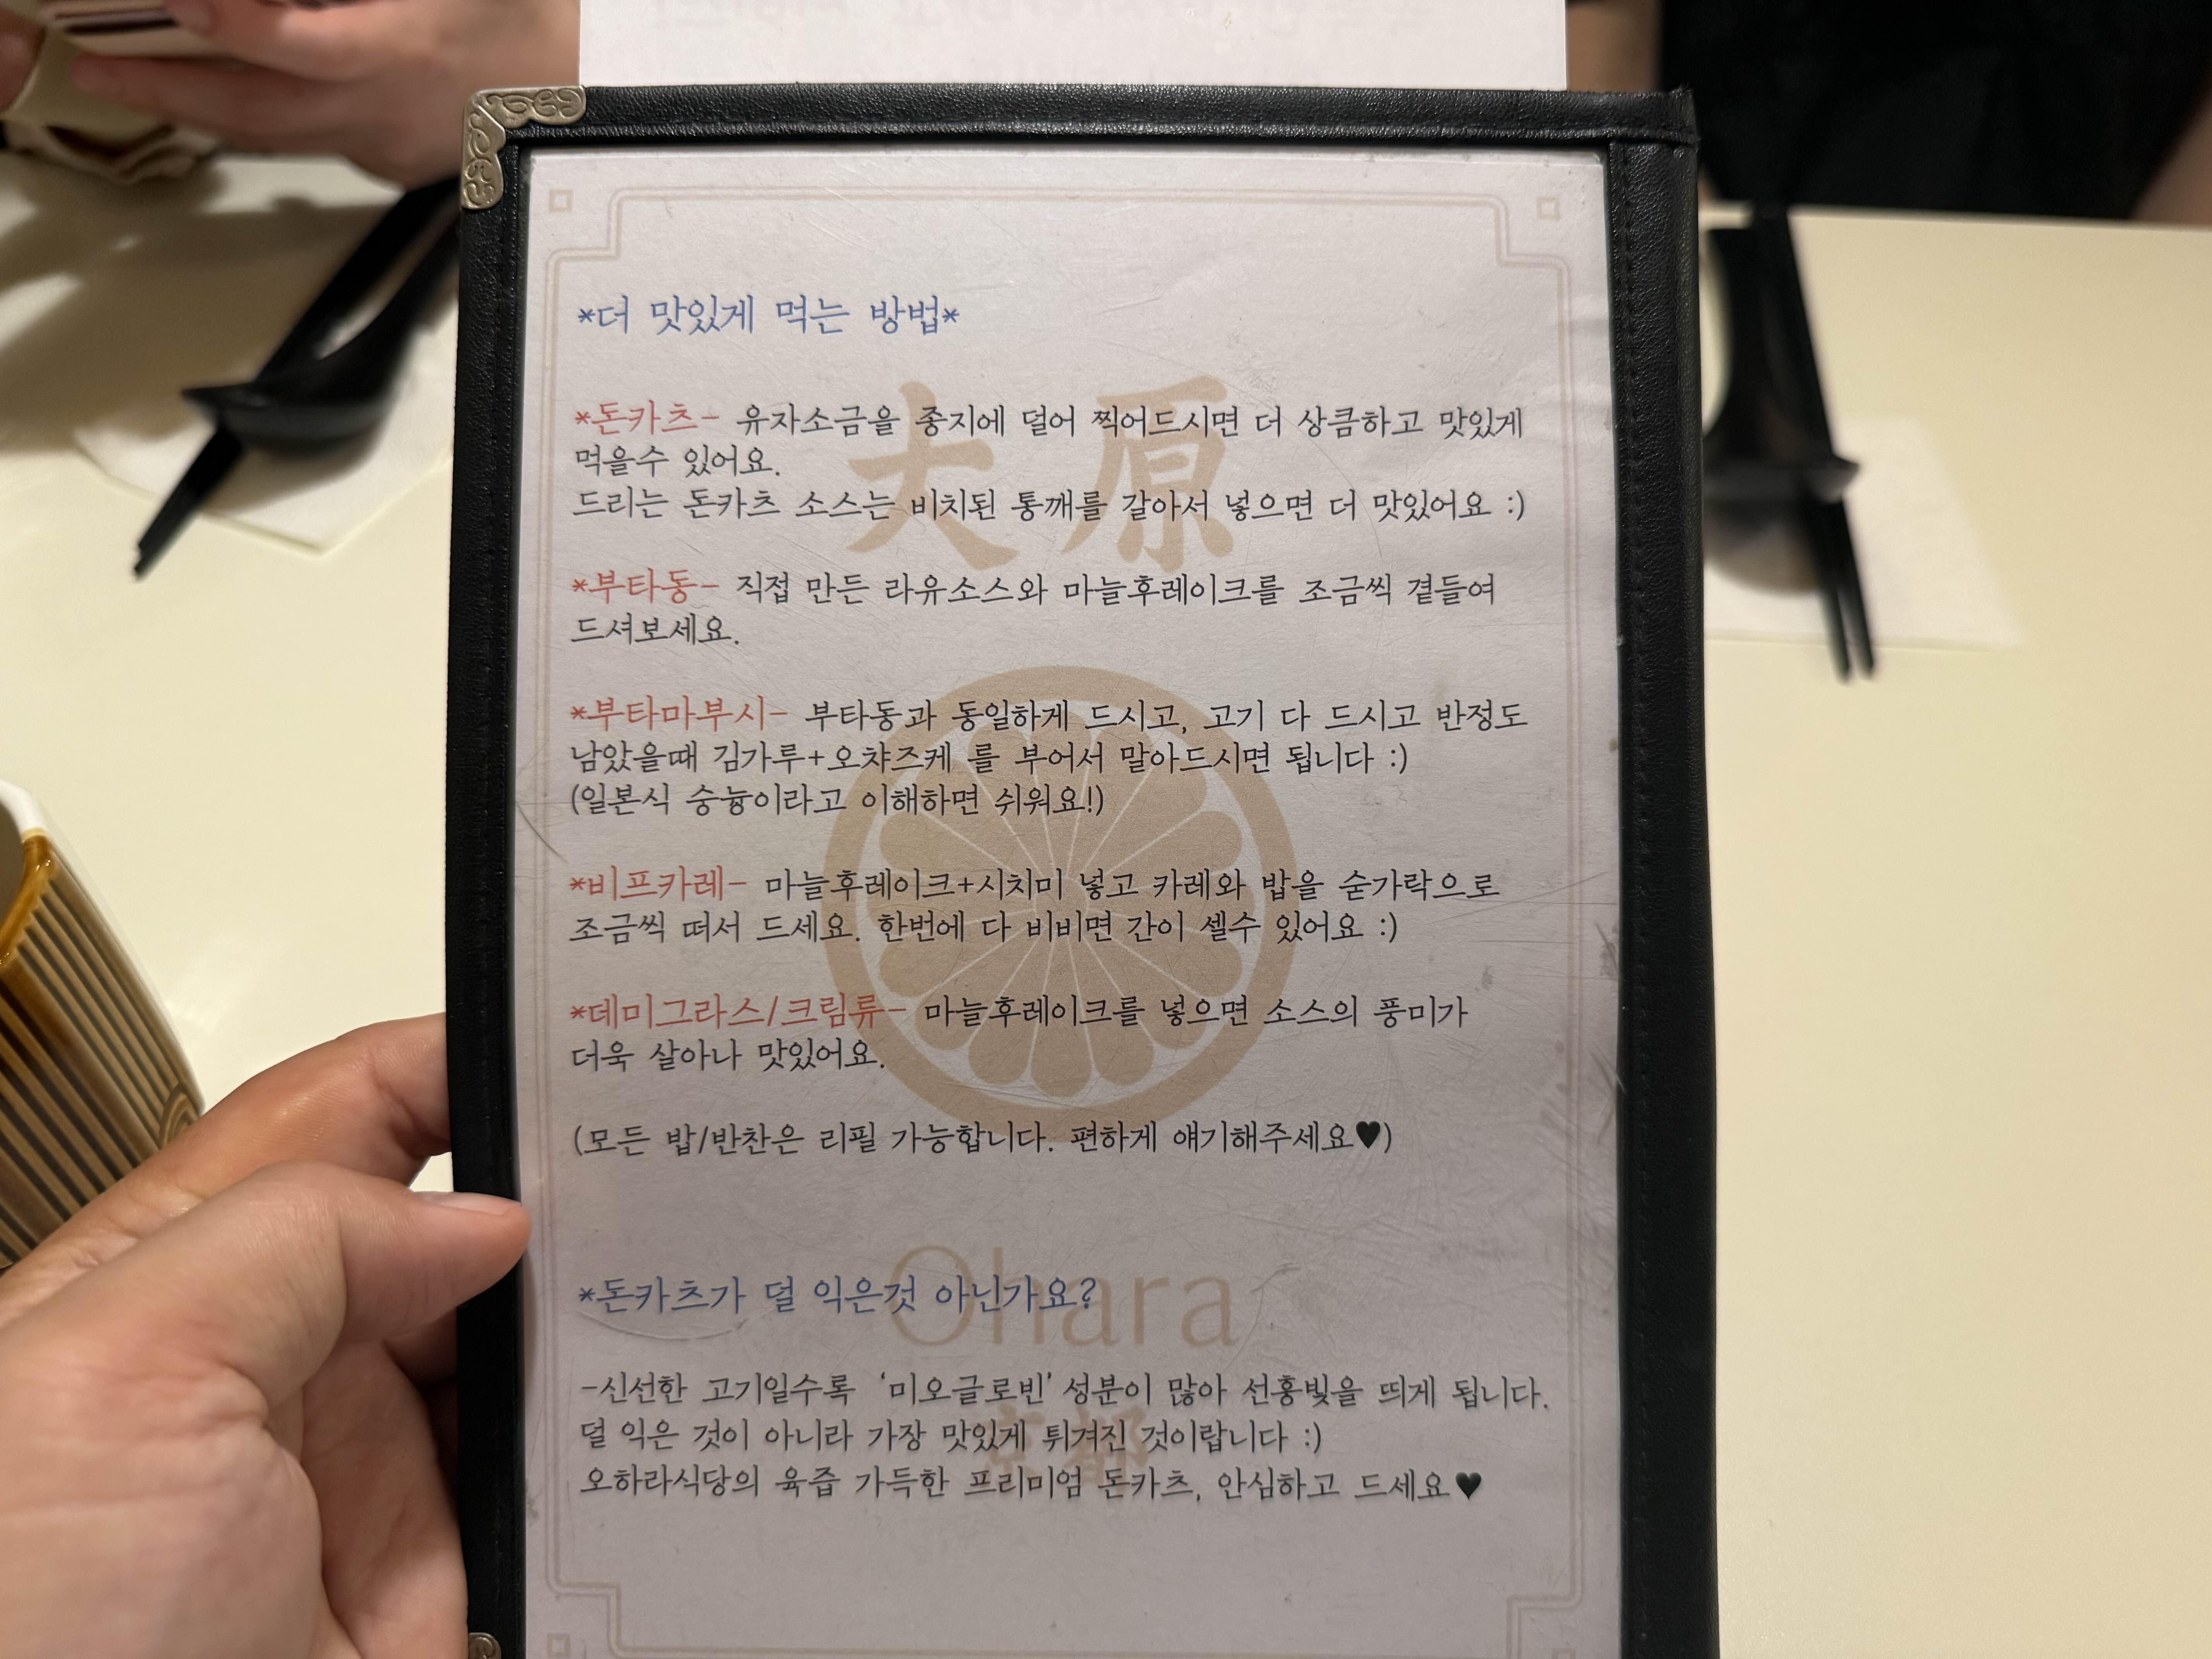 *더 맛있게 먹는 방법*
大原
*돈카츠- 유자소금을 종지에 덜어 찍어드시면 더 상큼하고 맛있게
먹을수 있어요.
드리는 돈카츠 소스는 비치된 통깨를 갈아서 넣으면 더 맛있어요 :)
*부타동- 직접 만든 라유소스와 마늘후레이크를 조금씩 곁들여
드셔보세요.
*부타마부시- 부타동과 동일하게 드시고, 고기 다 드시고 반정도
남았을때 김가루+오챠즈케 를 부어서 말아드시면 됩니다 :)
(일본식 숭늉이라고 이해하면 쉬워요!)
*비프카레- 마늘후레이크+시치미 넣고 카레와 밥을 숟가락으로
조금씩 떠서 드세요. 한번에 다 비비면 간이 셀수 있어요 :)
*데미그라스/크림류- 마늘후레이크를 넣으면 소스의 풍미가
더욱 살아나 맛있어요.
(모든 밥/반찬은 리필 가능합니다. 편하게 얘기해주세요♥)
Ohara
*돈카츠가 덜 익은것 아닌가요?
-신선한 고기일수록 '미오글로빈' 성분이 많아 선홍빛을 띄게 됩니다.
덜 익은 것이 아니라 가장 맛있게 튀겨진 것이랍니다 :)
오하라식당의 육즙 가득한 프리미엄 돈카츠, 안심하고 드세요♥